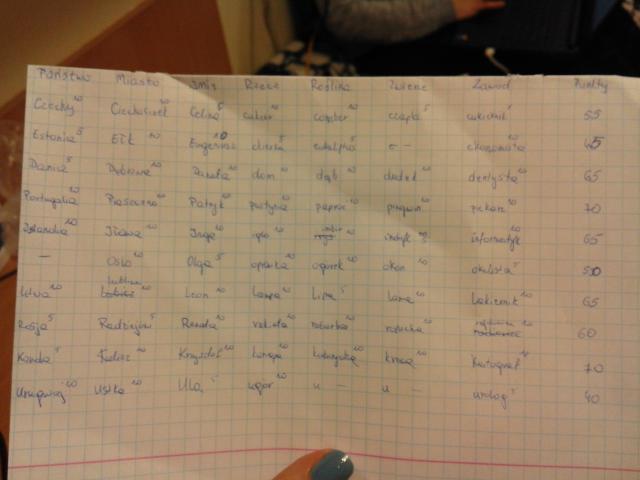 Państwo Miasto Imię Rzecz Roślina Zwierzę Zawód Punkty
Czechy 10 Ciechocinek 10 Celina 5 cukier 10 10 czapla 5 cukiernik 5 55
Estonia 5 Ełk 10 Eugeniusz 10 5 eukaliptus 5 e - ekonomista 10 45
Dania 5 10 Danuta 10 dom 10 dąb 10 dudek 10 dentysta 10 65
Portugalia 10 Piaseczno 10 Patryk 10 pustynia 10 paproć 10 pingwin 10 piekarz 10 70
Islandia 10 Iława 10 Inga 10 igło 10 imbir 10 indyk 5 informatyk 10 65
- Oslo 10 Olga 5 10 ogórek 10 okoń 10 okulista 5 50
Litwa 10 Lublin 10 Leon 10 lampa 10 Lipa 5 Lama 10 Lakiernik 10 65
Rosja 5 Radzymin 5 Renata 10 rakieta 10 10 ropucha 10 10 60
Kanada 5 Kalisz 10 Krzysztof 10 10 10 10 Kartograf 10 70
Urugwaj 10 Ustka 10 Ula 5 ugór 10 u - u - urolog 5 40